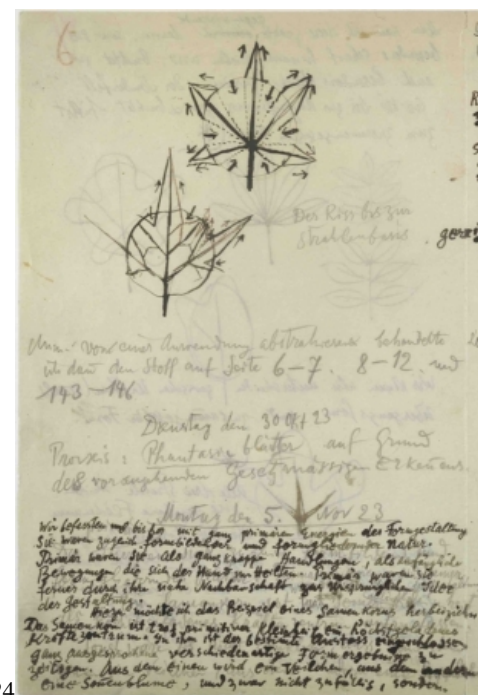 6
Der Riss bis zur
strahlenbasis
Anm. von einer Anwendung abstrahierend behandelte
ich dann den Stoff auf Seite 6–7. 8–12. und
143–146
Dienstag den 30 Okt 23
Praxis: Phantasieblätter auf Grund
des vorangehenden gesetzmässigen Erkennens.
Montag den 5. Nov 23
Wir befassten uns bisher mit ganz primären Energien der Formgestaltung
Sie waren zugleich formbildender und formgliedernder Natur.
Primär waren sie als ganz knappe Handlungen, als anfängliche
Bewegungen die sich der Hand mitteilten. Primär waren sie
ferner durch ihre nahe Nachbarschaft zur ursprünglichen Idee
der Gestaltung.
Hiezu möchte ich das Beispiel eines Samenkorns herbeiziehen
Das Samenkorn ist trotz primitiver Kleinheit ein höchstgeladenes
Kraftzentrum. In ihm ist der bestimmte Anstoss eingeschlossen
ganz ausgesprochen verschiedenartige Formergebnisse zu
zeitigen. Aus dem einen wird ein Veilchen, aus dem andern
eine Sonnenblume, und zwar nicht zufällig, sondern
24